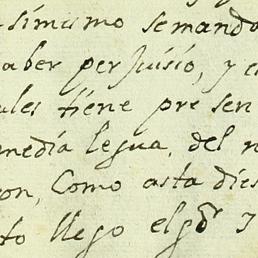 simismo semando
aber perJuisio, y
ules tiene pre sen
media legua, del
on, Como asta dies
to llego el gdr y